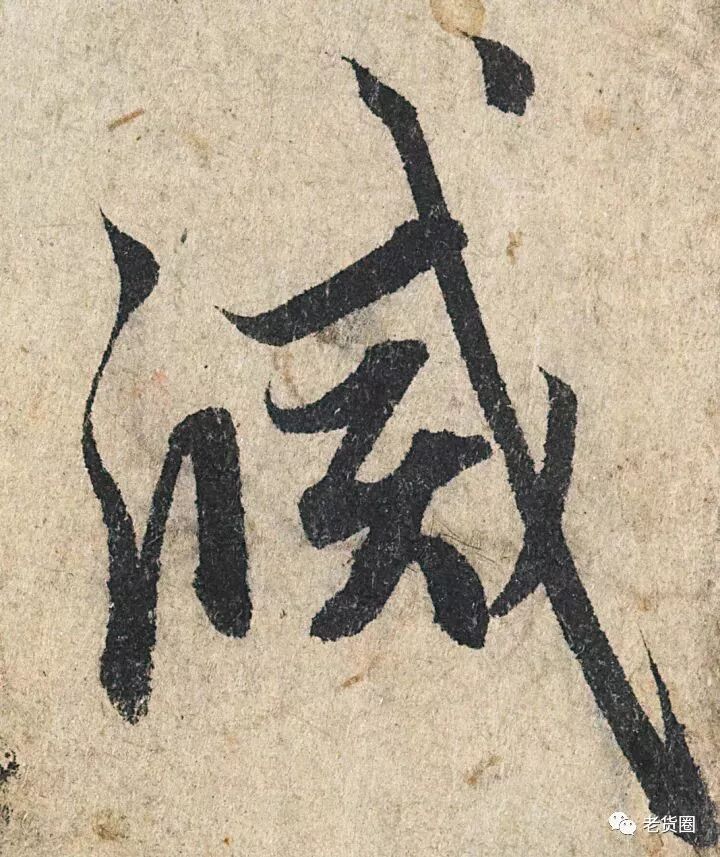 滅
老货圈